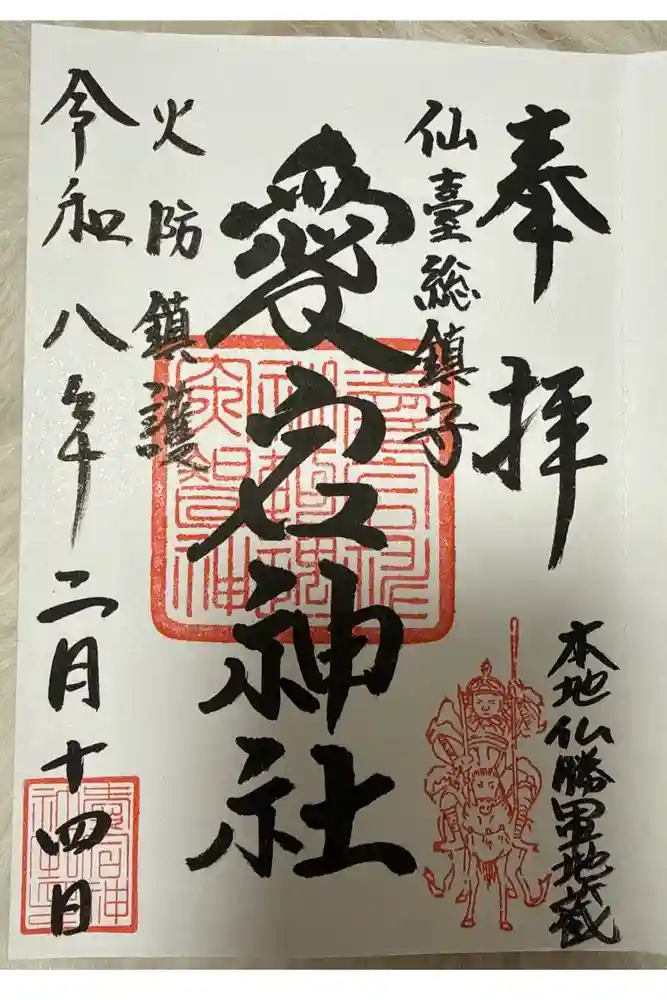 奉拝
本地仏勝軍地蔵
仙臺総鎮守
愛宕神社
火防鎮護
令和八年二月十四日